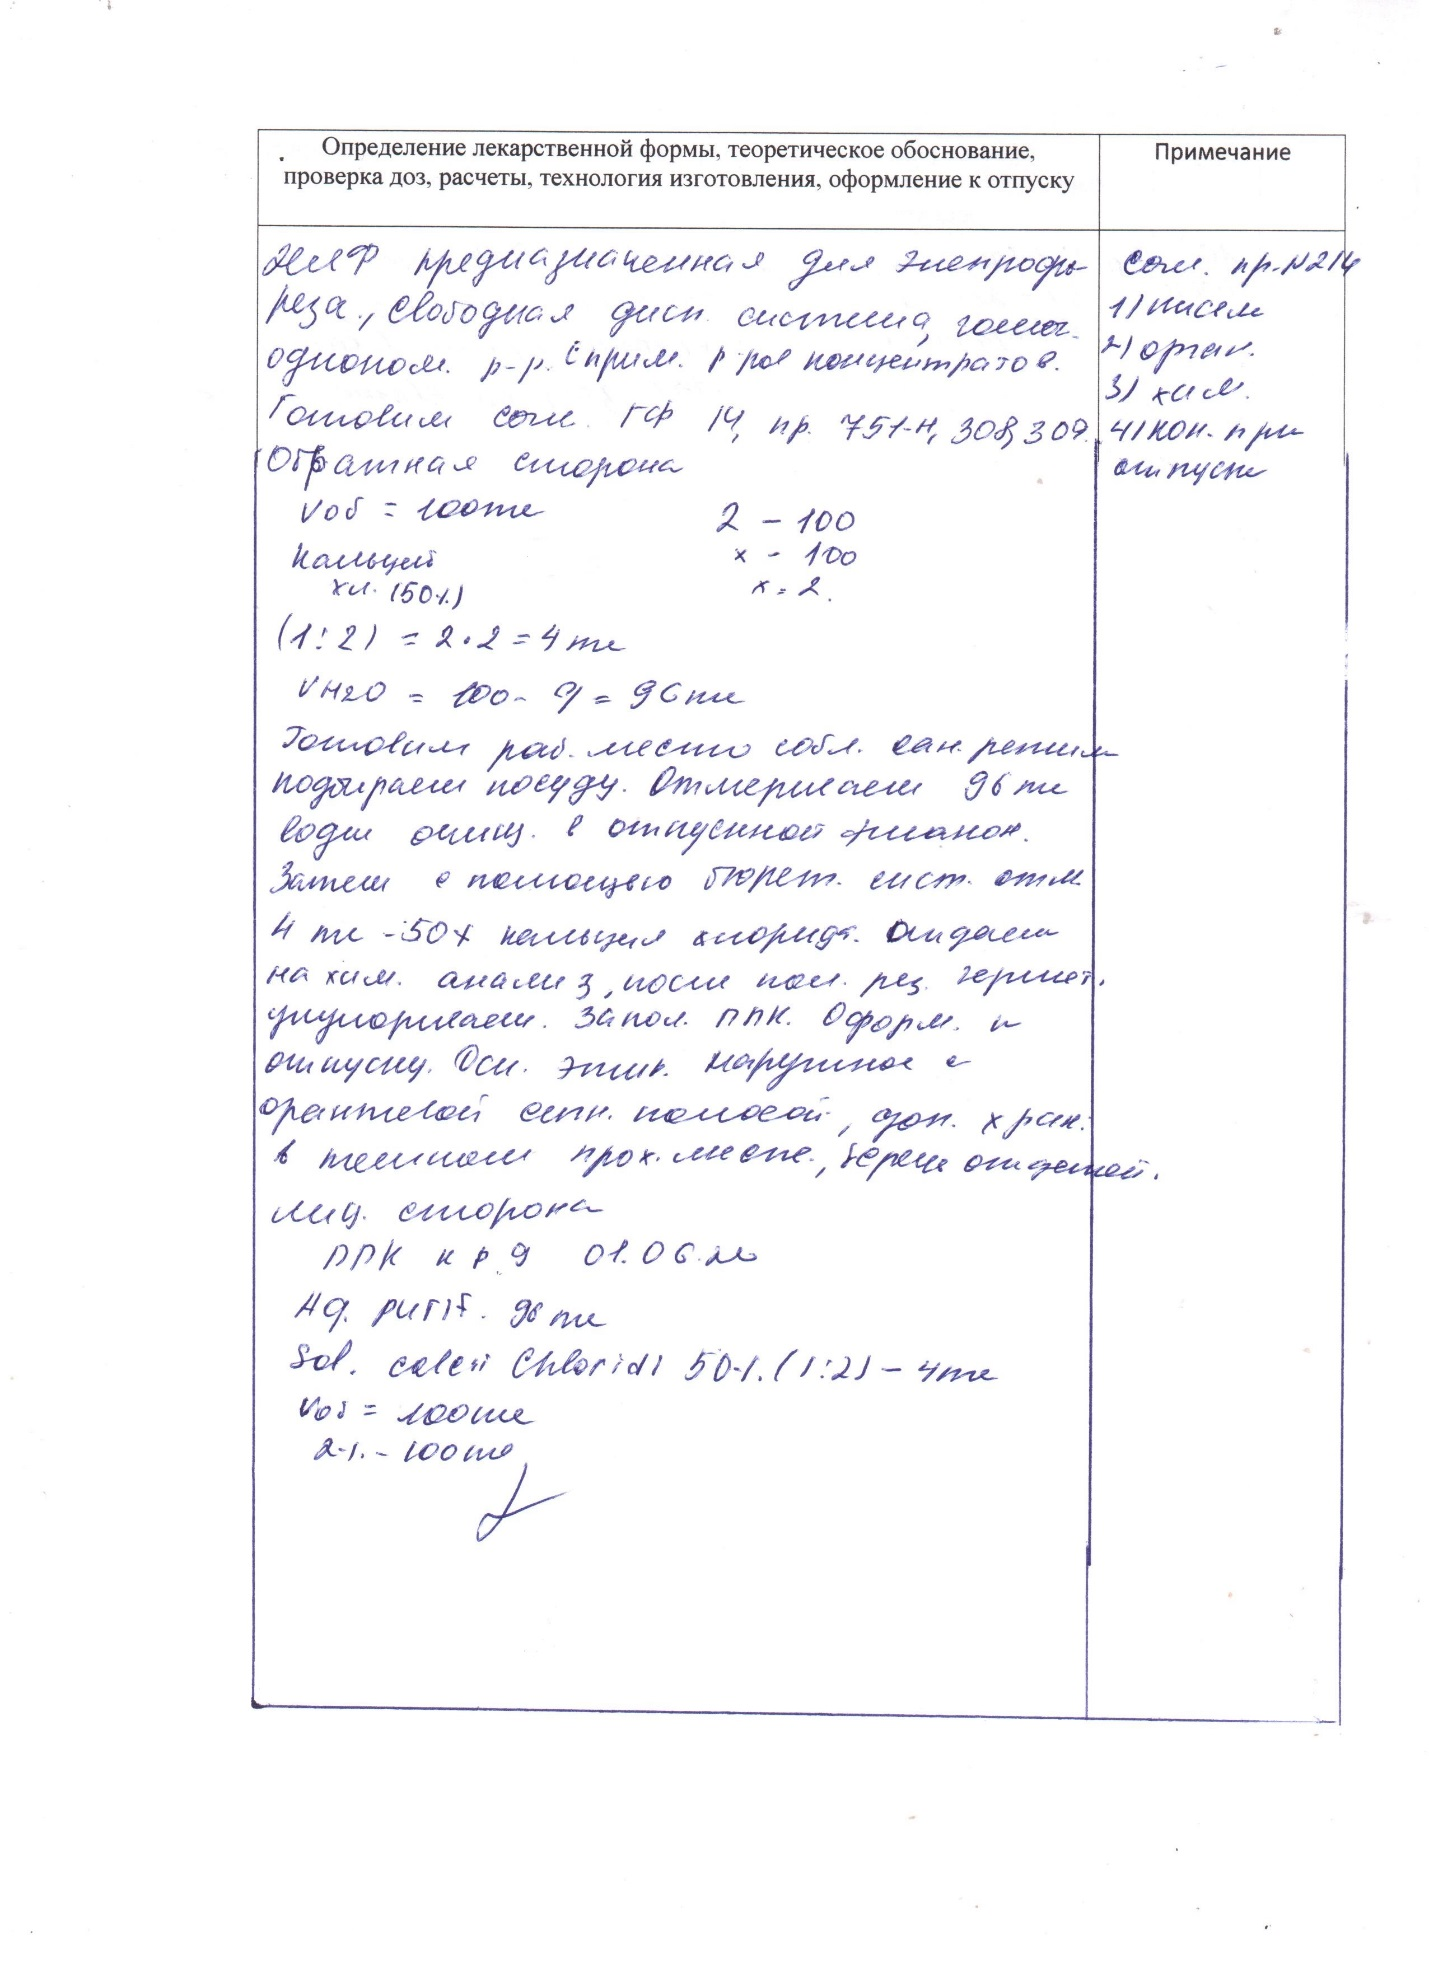 Определение лекарственной формы, теоретическое обоснование,
проверка доз, расчеты, технология изготовления, оформление к отпуску
Примечание
ЖЛФ предназначенная для электрофо
реза., свободная дисп. система, гомог.
одноком. р-р. с прим. р-ров концентратов.
Готовим согл. ГФ 14, пр. 751-н, 308, 309.
Обратная сторона
Vоб = 100мл
2 – 100
Кальций
x - 100
хл. (50%)
x = 2.
(1:2) = 2·2 = 4 мл
VH2O = 100 - 4 = 96 мл
Готовим раб. место собл. сан. режим
подбираем посуду. Отмериваем 96 мл
воды очищ. в отпускной флакон.
Затем с помощью бюрет. сист. отм.
4 мл - 50% кальция хлорида. Отдаем
на хим. анализ, после пол. рез. гермет.
укупориваем. Запол. ППК. Оформ. к
отпуску. Осн. этик. наружное с
оранжевой сигн. полосой, доп. хран.
в темном прох. месте., береч от детей.
лиц. сторона
ППК к р 9 01.06.20
Aq. purif. 96 мл
Sol. calcii Chloridi 50%. (1:2) – 4 мл
Vоб = 100мл
2%. – 100мл
Согл. пр. N214
1) писем
2) орган.
3) хим.
4) кон. при
отпуске